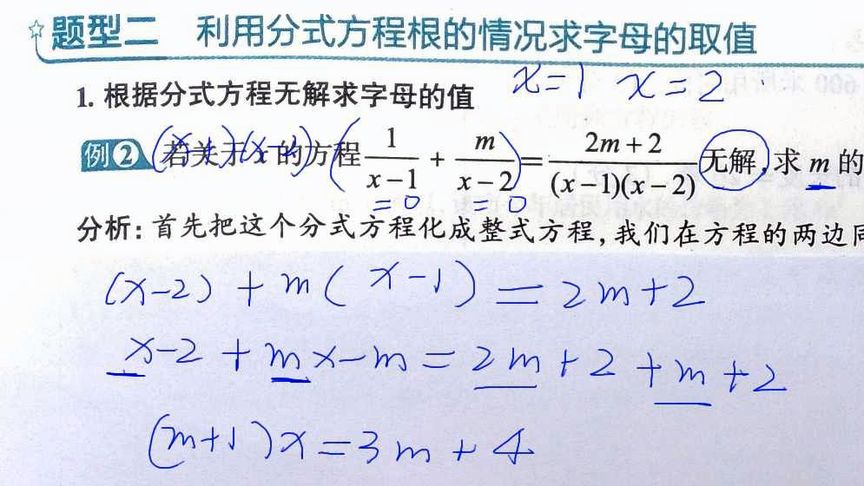 题型二 利用分式方程根的情况求字母的取值
1. 根据分式方程无解求字母的值
x=1 x=2
例2 若关于x的方程 1/(x-1) + m/(x-2) = (2m+2)/((x-1)(x-2)) 无解,求m的
(x-1)(x-2)
=0 =0
分析:首先把这个分式方程化成整式方程,我们在方程的两边同
(x-2)+m(x-1)=2m+2
x-2+mx-m=2m+2+m+2
(m+1)x=3m+4